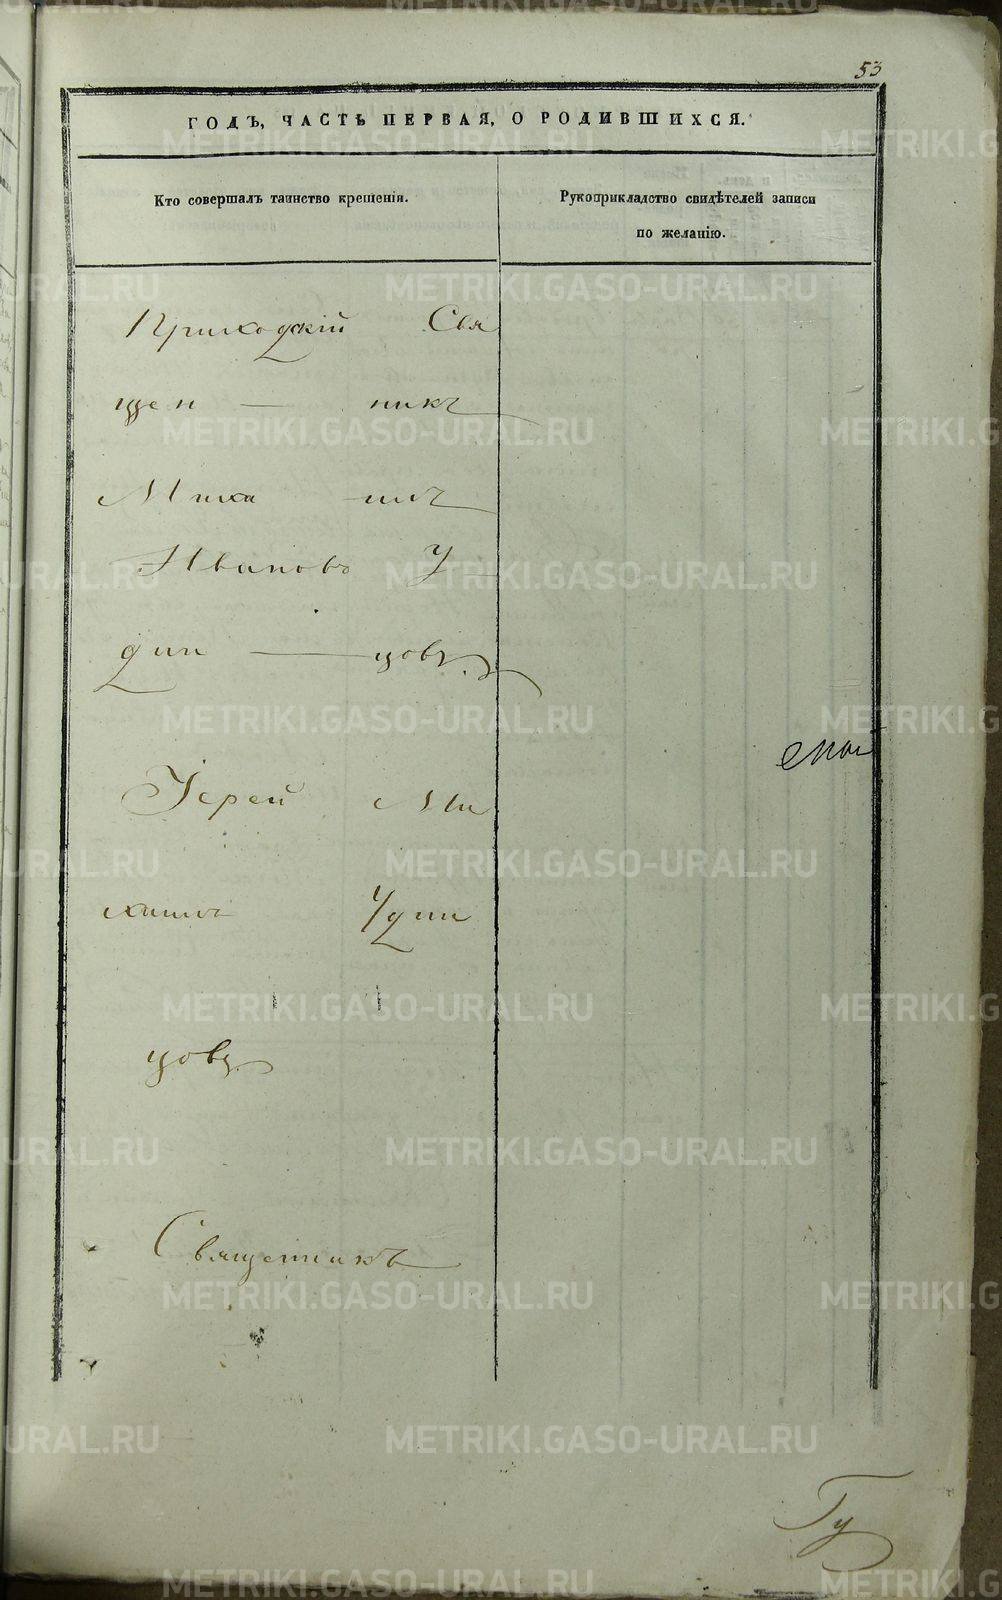 53
ГОДЪ, ЧАСТЬ ПЕРВАЯ, О РОДИВШИХСЯ.
Кто совершалъ таинство крещенія.
Рукоприкладство свидѣтелей записи
по желанію.
Приходскій Свя
щен — никъ
Миха — илъ
Ивановъ У
дин — цовъ.
Іерей Ми
хаилъ Удин
цовъ
Священникъ
Гу
METRIKI.GASO-URAL.RU